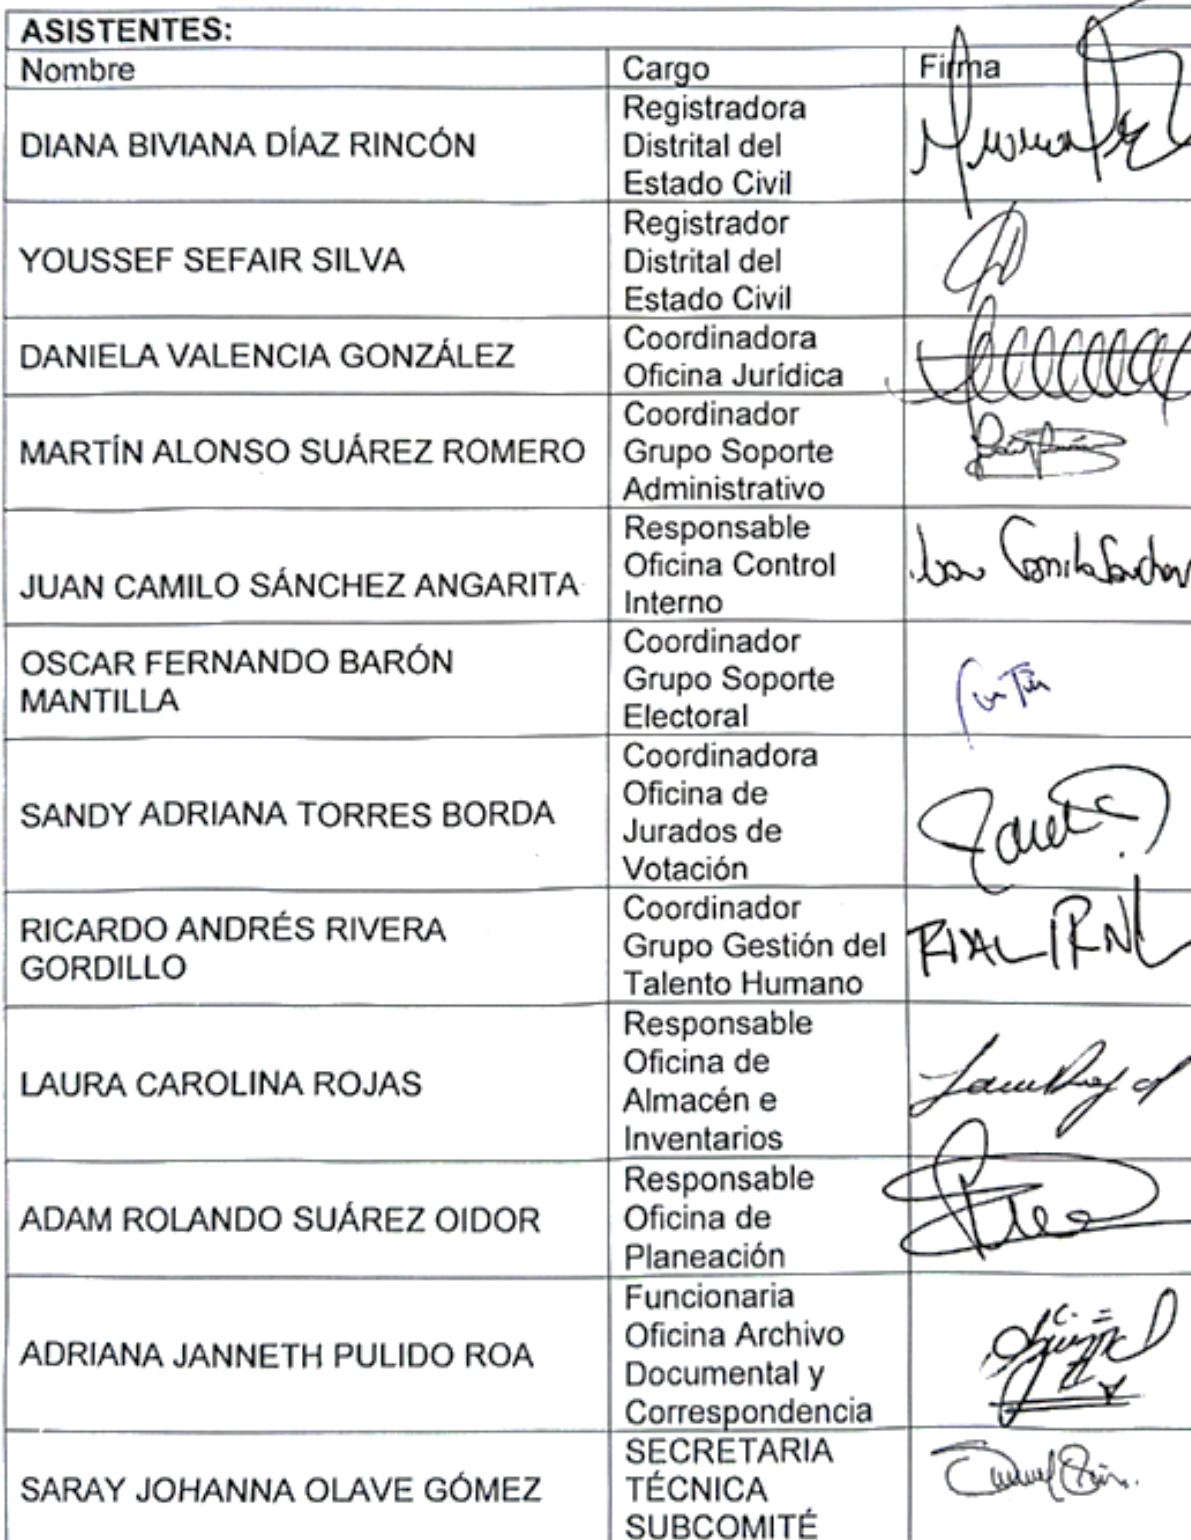 ASISTENTES:
Nombre Cargo Firma
DIANA BIVIANA DÍAZ RINCÓN
Registradora
Distrital del
Estado Civil
YOUSSEF SEFAIR SILVA
Registrador
Distrital del
Estado Civil
DANIELA VALENCIA GONZÁLEZ
Coordinadora
Oficina Jurídica
MARTÍN ALONSO SUÁREZ ROMERO
Coordinador
Grupo Soporte
Administrativo
JUAN CAMILO SÁNCHEZ ANGARITA
Responsable
Oficina Control
Interno
OSCAR FERNANDO BARÓN
MANTILLA
Coordinador
Grupo Soporte
Electoral
SANDY ADRIANA TORRES BORDA
Coordinadora
Oficina de
Jurados de
Votación
RICARDO ANDRÉS RIVERA
GORDILLO
Coordinador
Grupo Gestión del
Talento Humano
LAURA CAROLINA ROJAS
Responsable
Oficina de
Almacén e
Inventarios
ADAM ROLANDO SUÁREZ OIDOR
Responsable
Oficina de
Planeación
ADRIANA JANNETH PULIDO ROA
Funcionaria
Oficina Archivo
Documental y
Correspondencia
SARAY JOHANNA OLAVE GÓMEZ
SECRETARIA
TÉCNICA
SUBCOMITÉ